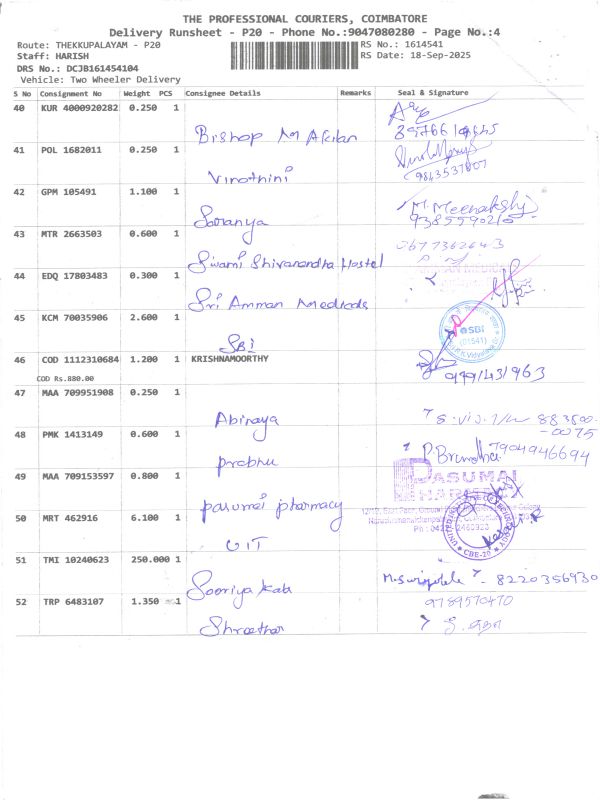 THE PROFESSIONAL COURIERS, COIMBATORE
Delivery Runsheet - P20 - Phone No.:9047080280 - Page No.:4
Route: THEKKUPALAYAM - P20 RS No.: 1614541
Staff: HARISH RS Date: 18-Sep-2025
DRS No.: DCJB161454104
Vehicle: Two Wheeler Delivery
S No Consignment No Weight PCS Consignee Details Remarks Seal & Signature
40 KUR 4000920282 0.250 1
Bishop M Akilan
41 POL 1682011 0.250 1
Virothini
42 GPM 105491 1.100 1 M. Meenakshi
Saranya
43 MTR 2663503 0.600 1
Swami Shivanandha Hostel
44 EDQ 17803483 0.300 1
Sri Amman Medicals
45 KCM 70035906 2.600 1 SBI
SBI
46 COD 1112310684 1.200 1 KRISHNAMOORTHY
COD Rs.880.00
47 MAA 709951908 0.250 1
Abinaya
48 PMK 1413149 0.600 1 7904946694
prabhu
49 MAA 709153597 0.800 1 PASUMAI
pasumai pharmacy
50 MRT 462916 6.100 1
UIT CBE-20
51 TMI 10240623 250.000 1 8220356930
Sooriya Kala
52 TRP 6483107 1.350 1 9789570470
Shreethar